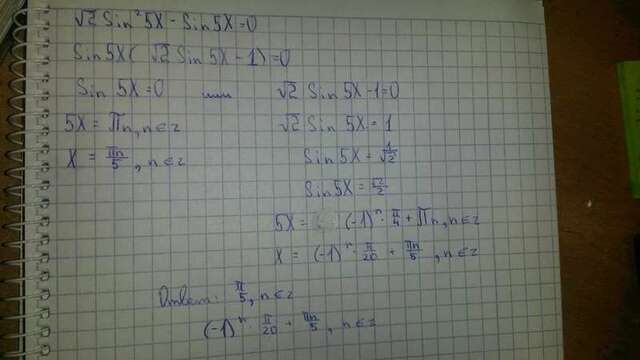 √2 Sin²5X - Sin5X = 0
Sin5X( √2 Sin5X - 1) = 0
Sin 5X = 0 или √2 Sin 5X - 1 = 0
5X = πn, n∈z √2 Sin 5X = 1
X = πn/5, n∈z Sin5X = 1/√2
Sin5X = √2/2
5X = (-1)ⁿ · π/4 + πn, n∈z
X = (-1)ⁿ · π/20 + πn/5, n∈z
Ответ: π/5, n∈z
(-1)ⁿ · π/20 + πn/5, n∈z